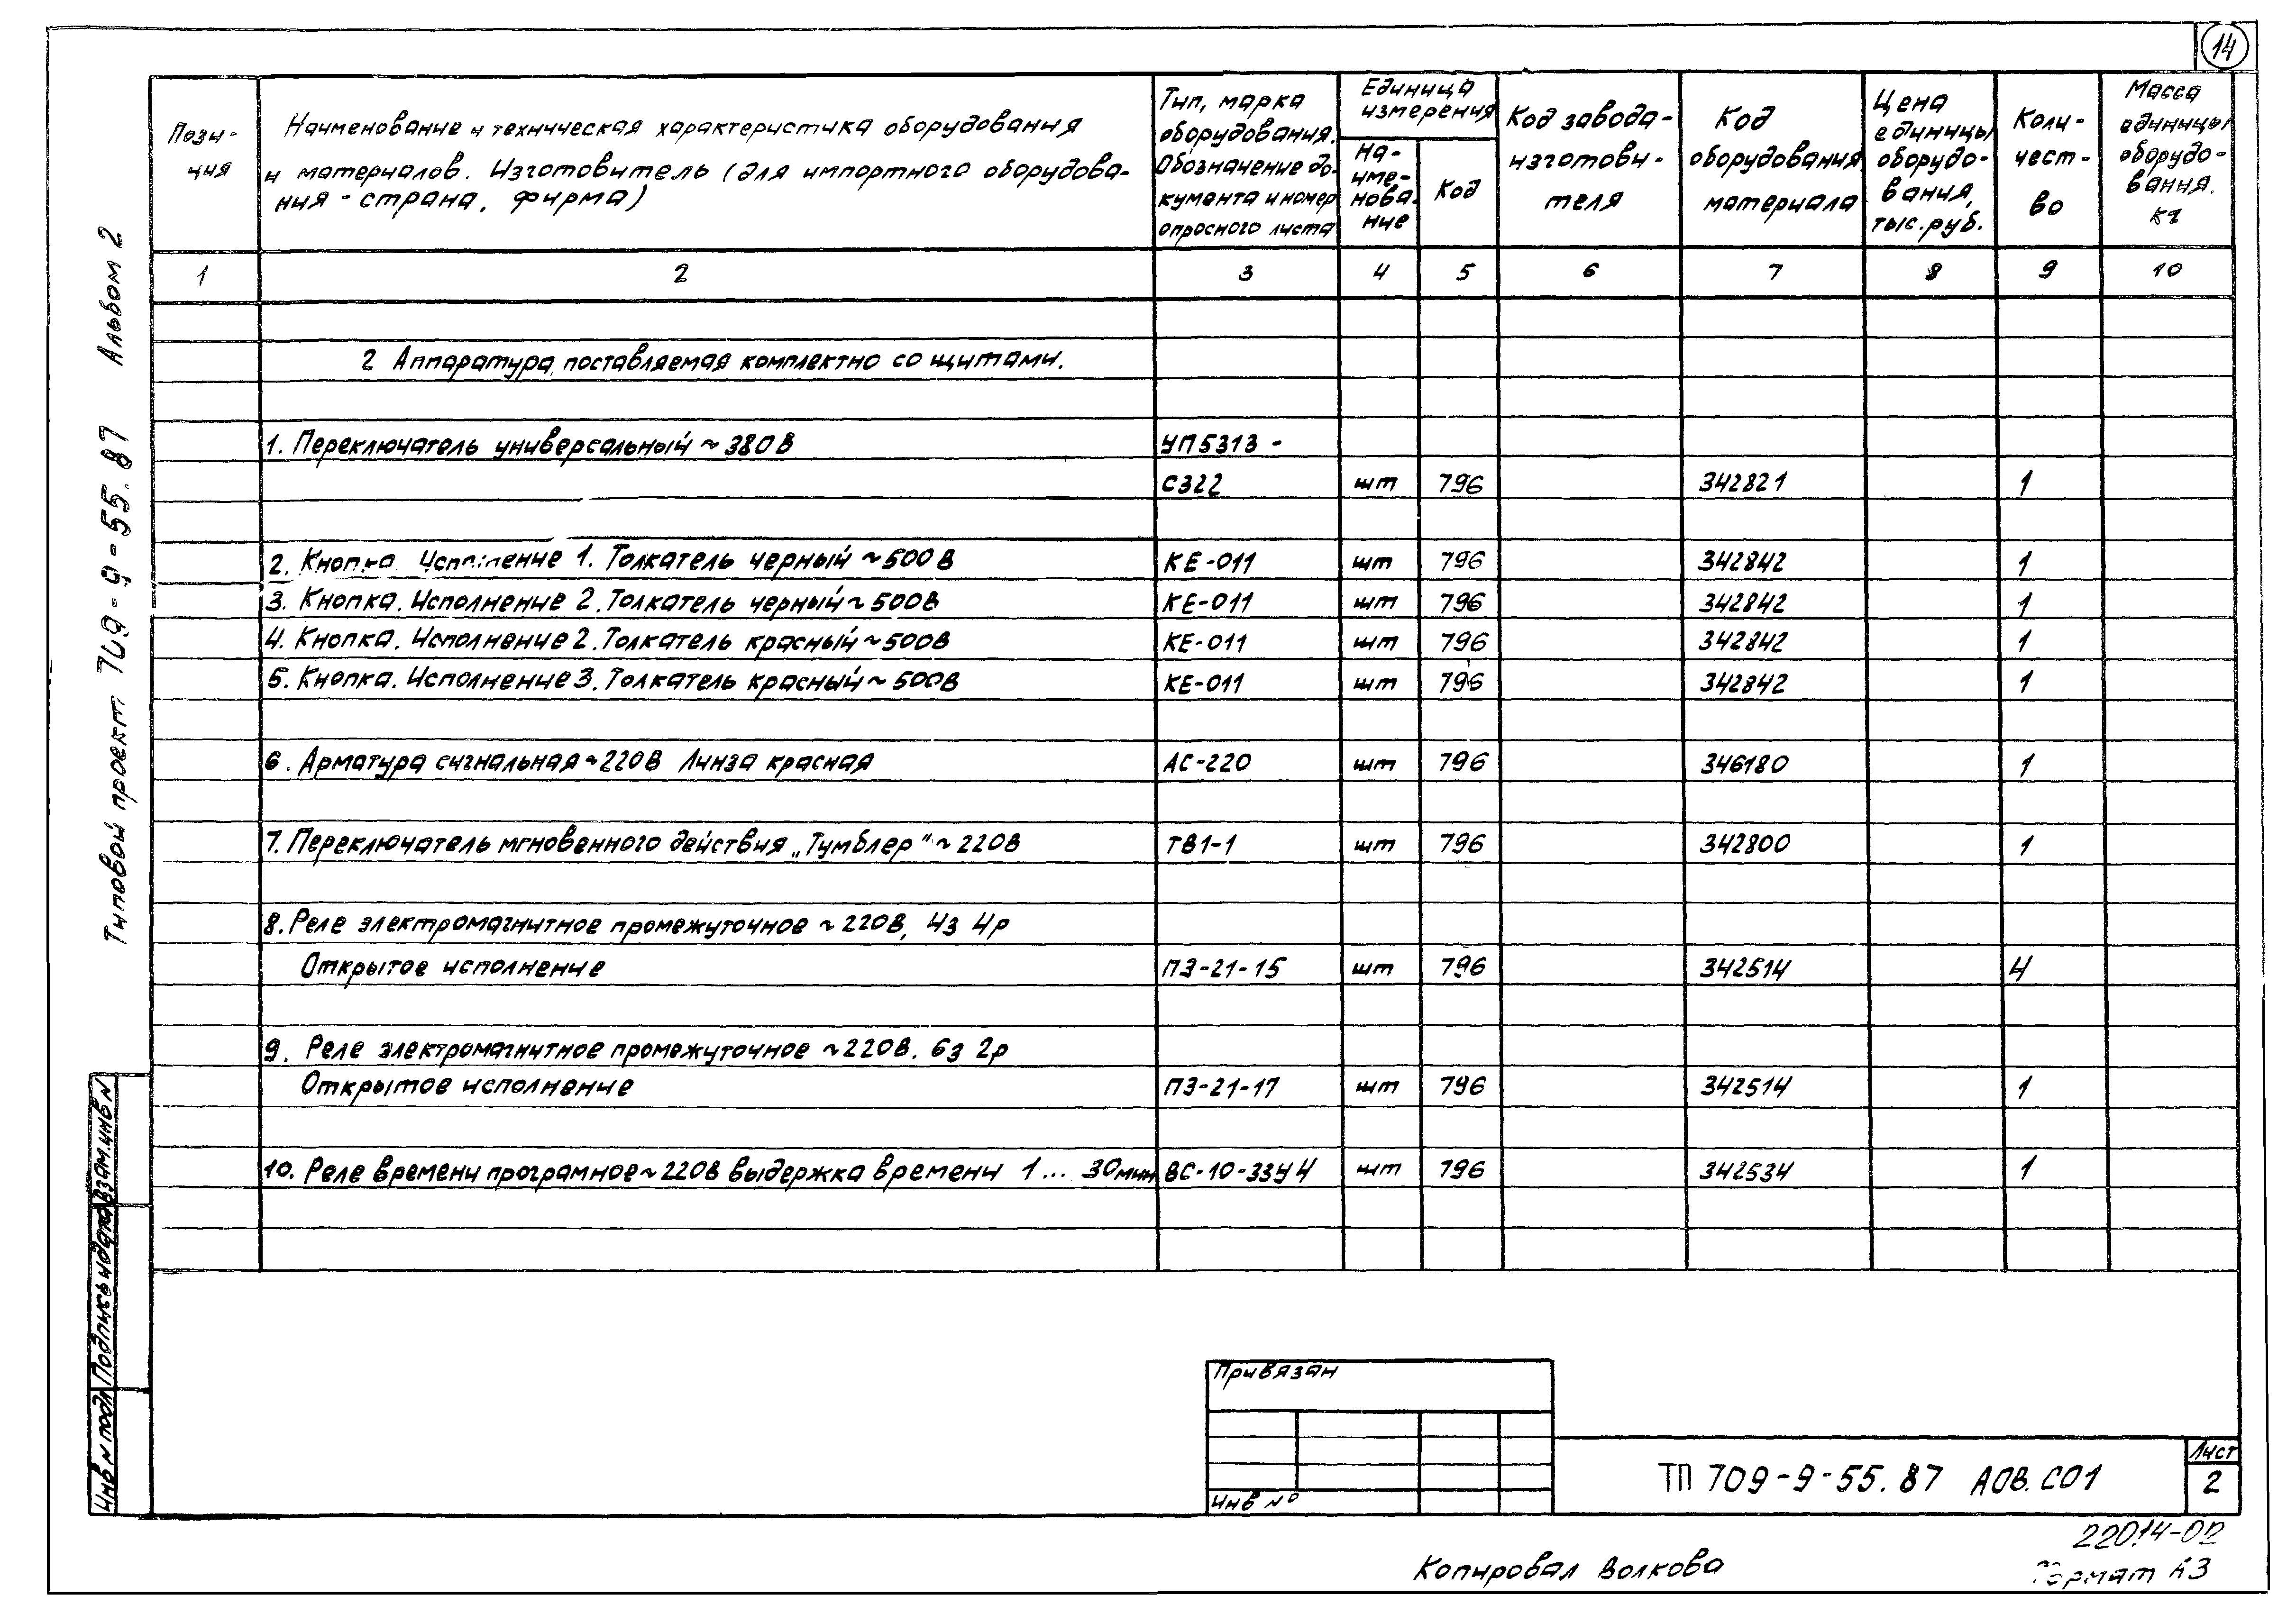 14
Пози-
ция
Наименование и техническая характеристика оборудования
и материалов. Изготовитель (для импортного оборудова-
ния - страна, фирма)
Тип, марка
оборудования.
Обозначение до-
кумента и номер
опросного листа
Единица
измерения
На-
име-
нова-
ние
Код
Код завода-
изготови-
теля
Код
оборудования
материала
Цена
единицы
оборудо-
вания,
тыс.руб.
Коли-
чест-
во
Масса
единицы
оборудо-
вания.
кг
1 2 3 4 5 6 7 8 9 10
2 Аппаратура, поставляемая комплектно со щитами.
1. Переключатель универсальный ~ 380В УП5313 -
С322 шт 796 342821 1
2. Кнопка. Исполнение 1. Толкатель черный ~ 500В КЕ-011 шт 796 342842 1
3. Кнопка. Исполнение 2. Толкатель черный ~ 500В КЕ-011 шт 796 342842 1
4. Кнопка. Исполнение 2. Толкатель красный ~ 500В КЕ-011 шт 796 342842 1
5. Кнопка. Исполнение 3. Толкатель красный ~ 500В КЕ-011 шт 796 342842 1
6. Арматура сигнальная ~ 220В Линза красная АС-220 шт 796 346180 1
7. Переключатель мгновенного действия „Тумблер" ~ 220В ТВ1-1 шт 796 342800 1
8. Реле электромагнитное промежуточное ~ 220В, 4з 4р
Открытое исполнение ПЭ-21-15 шт 796 342514 4
9. Реле электромагнитное промежуточное ~ 220В. 6з 2р
Открытое исполнение ПЭ-21-17 шт 796 342514 1
10. Реле времени програмное ~ 220В выдержка времени 1 ... 30мин ВС-10-33У4 шт 796 342534 1
Типовой проект 709-9-55.87 Альбом 2
Инв N подл Подпись и дата Взам.инв N
Привязан
Инв №
ТП 709-9-55.87 АОВ.СО1
Лист
2
22014-02
Копировал Волкова
Формат А3